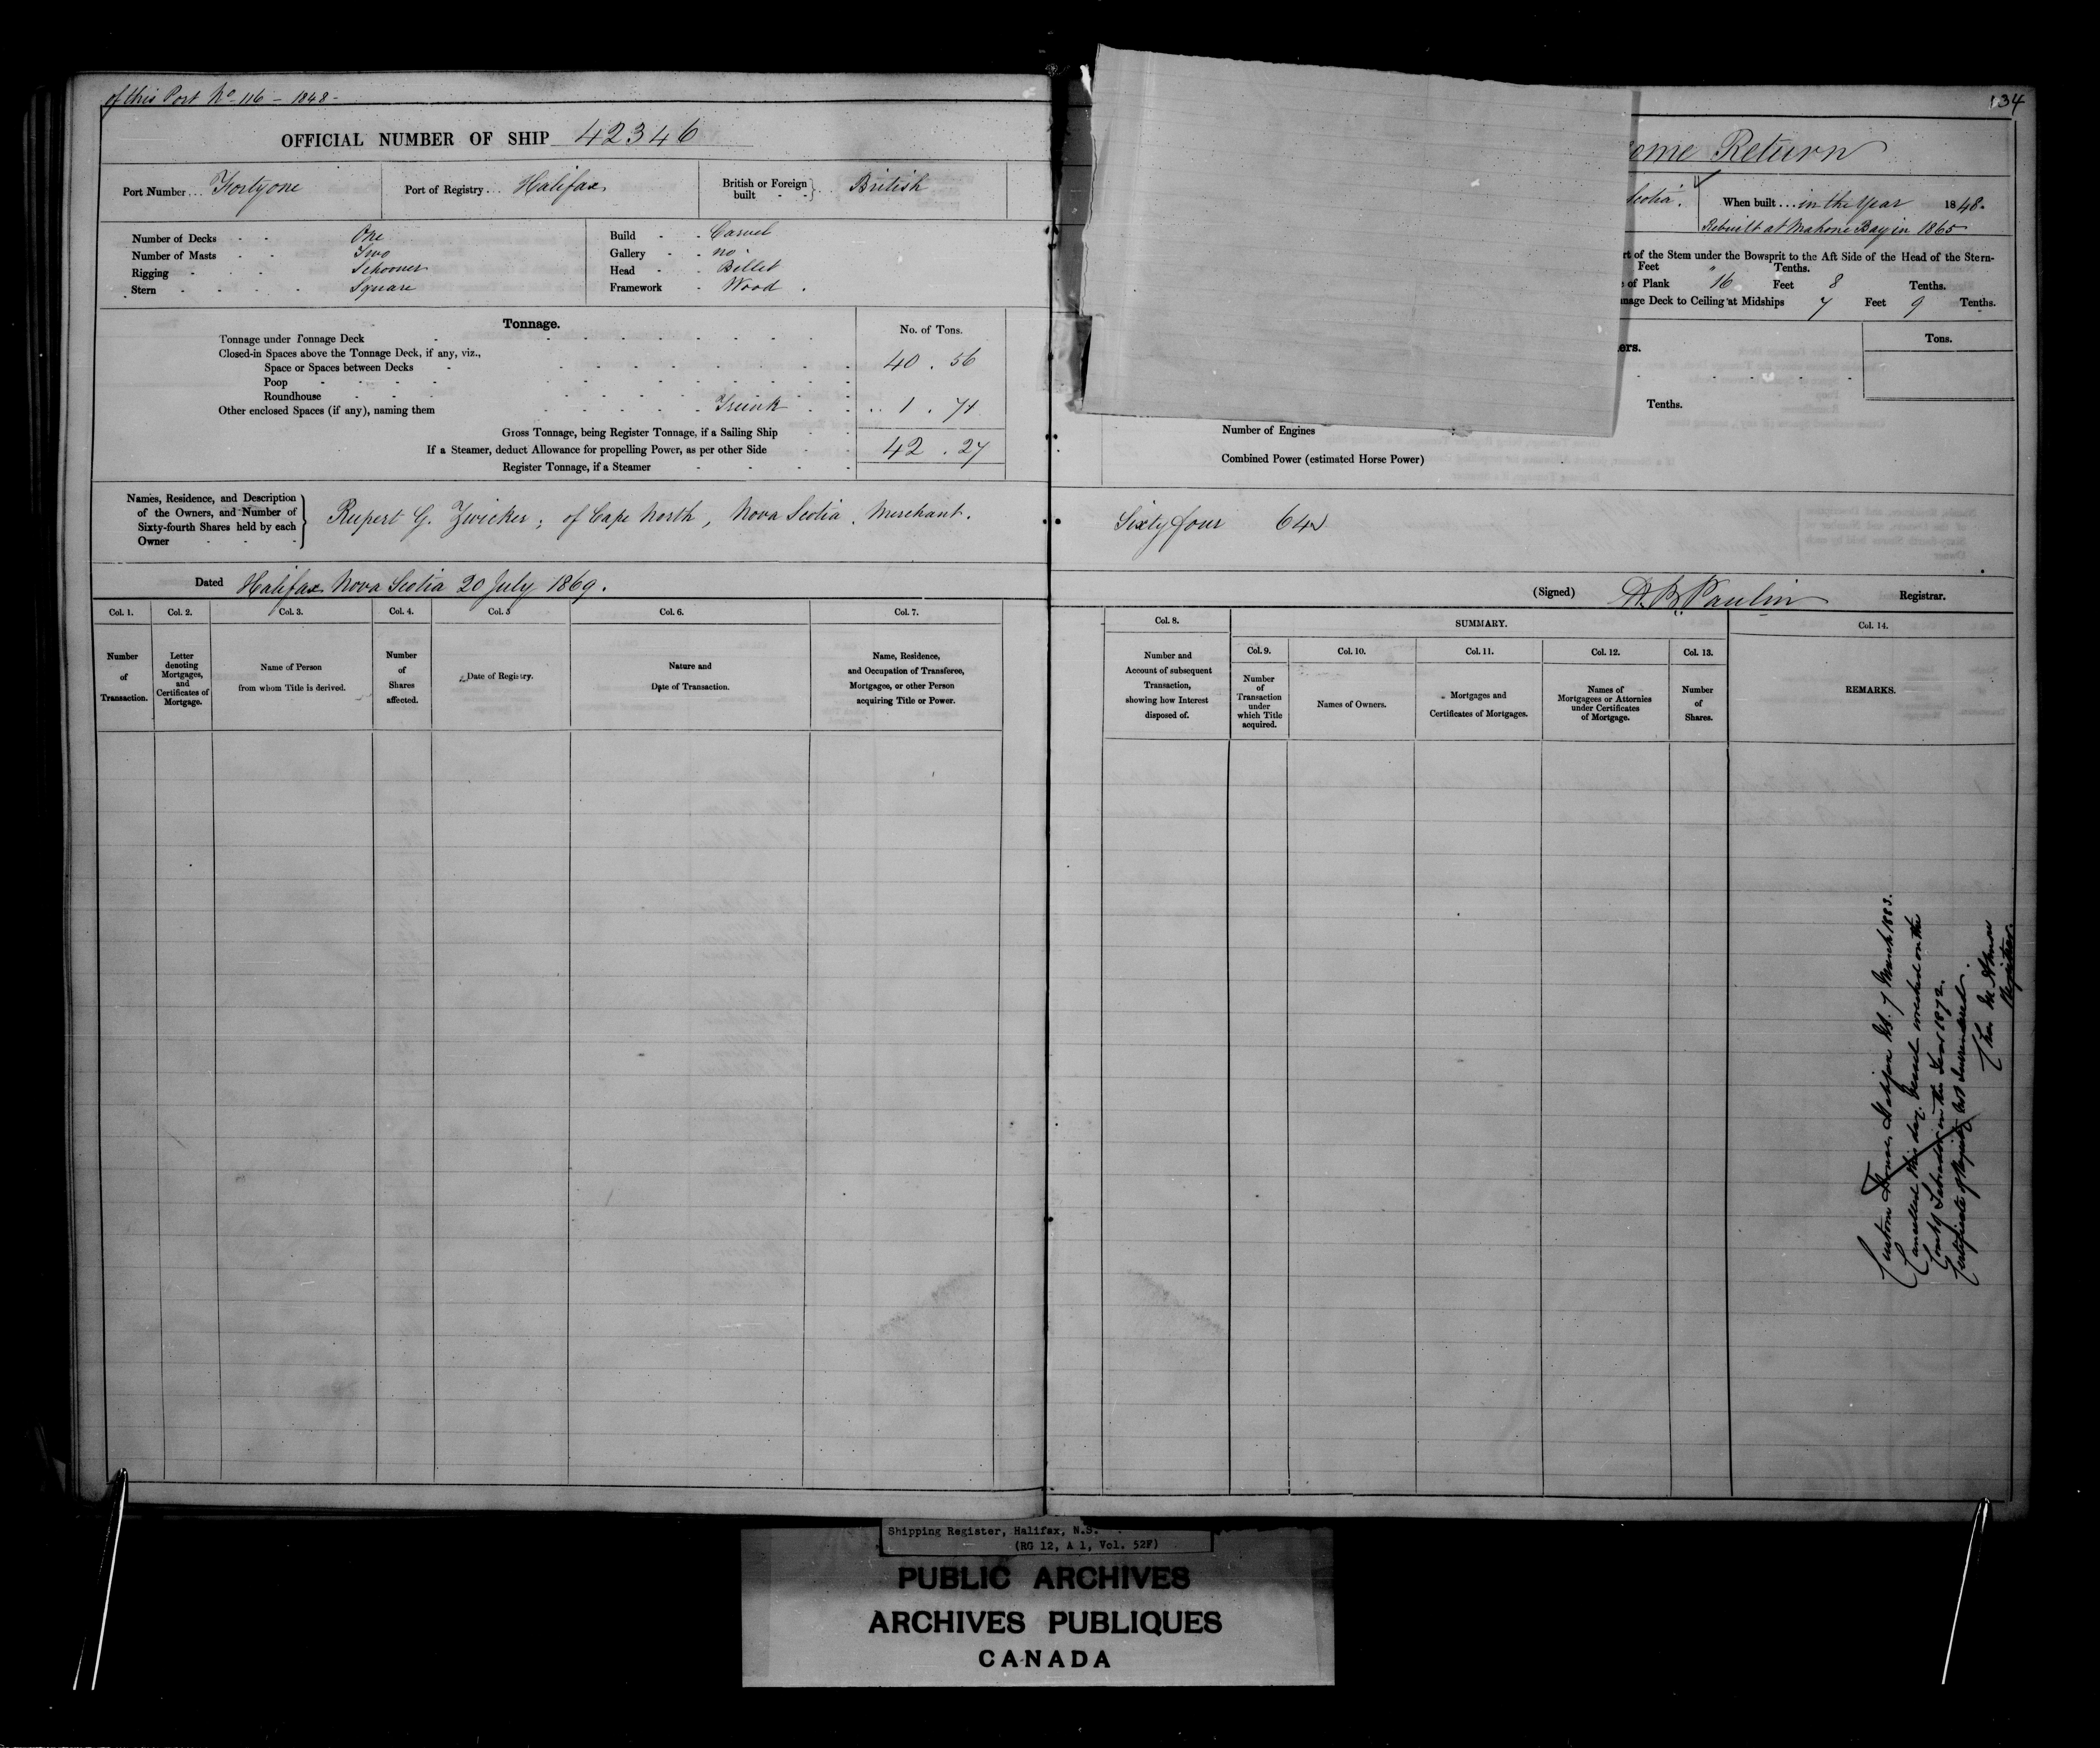 of this Port No 116 - 1848 -
OFFICIAL NUMBER OF SHIP 42346
Port Number... Forty one
Port of Registry... Halifax
British or Foreign built } .. British
Number of Decks - - One
Number of Masts - - Two
Rigging - - - Schooner
Stern - - - - Square
Build - - Carvel
Gallery - - no
Head - - Billet
Framework - Wood .
Tonnage.
No. of Tons.
Tonnage under Tonnage Deck
Closed-in Spaces above the Tonnage Deck, if any, viz.,
Space or Spaces between Decks 40 . 56
Poop
Roundhouse
Other enclosed Spaces (if any), naming them Trunk 1 . 71
Gross Tonnage, being Register Tonnage, if a Sailing Ship
If a Steamer, deduct Allowance for propelling Power, as per other Side 42 . 27
Register Tonnage, if a Steamer
Names, Residence, and Description
of the Owners, and Number of
Sixty-fourth Shares held by each
Owner
Rupert G. Zwicker ; of Cape North, Nova Scotia . Merchant .
Dated Halifax Nova Scotia 20 July 1869 .
Col. 1. Col. 2. Col. 3. Col. 4. Col. 5 Col. 6. Col. 7.
Number of Transaction.
Letter denoting Mortgages, and Certificates of Mortgage.
Name of Person from whom Title is derived.
Number of Shares affected.
Date of Registry.
Nature and Date of Transaction.
Name, Residence, and Occupation of Transferee, Mortgagee, or other Person acquiring Title or Power.
134
ome Return
Scotia .
When built ... in the Year 1848.
Rebuilt at Mahone Bay in 1865
rt of the Stem under the Bowsprit to the Aft Side of the Head of the Stern-
Feet " Tenths.
of Plank 16 Feet 8 Tenths.
nage Deck to Ceiling at Midships 7 Feet 9 Tenths.
ers.
Tons.
Tenths.
Number of Engines
Combined Power (estimated Horse Power)
Sixty four 64
(Signed) Registrar.
Col. 8.
SUMMARY.
Col. 14.
Col. 9. Col. 10. Col. 11. Col. 12. Col. 13.
Number and Account of subsequent Transaction, showing how Interest disposed of.
Number of Transaction under which Title acquired.
Names of Owners.
Mortgages and Certificates of Mortgages.
Names of Mortgagees or Attornies under Certificates of Mortgage.
Number of Shares.
REMARKS.
Custom House, Halifax NS. 7 March 1883.
Cancelled this day. Vessel wrecked on the
Coast of Labrador in the Year 1872.
Certificate of Registry not Surrendered.
Registrar.
Shipping Register, Halifax, N.S.
(RG 12, A 1, Vol. 52F)
PUBLIC ARCHIVES
ARCHIVES PUBLIQUES
CANADA